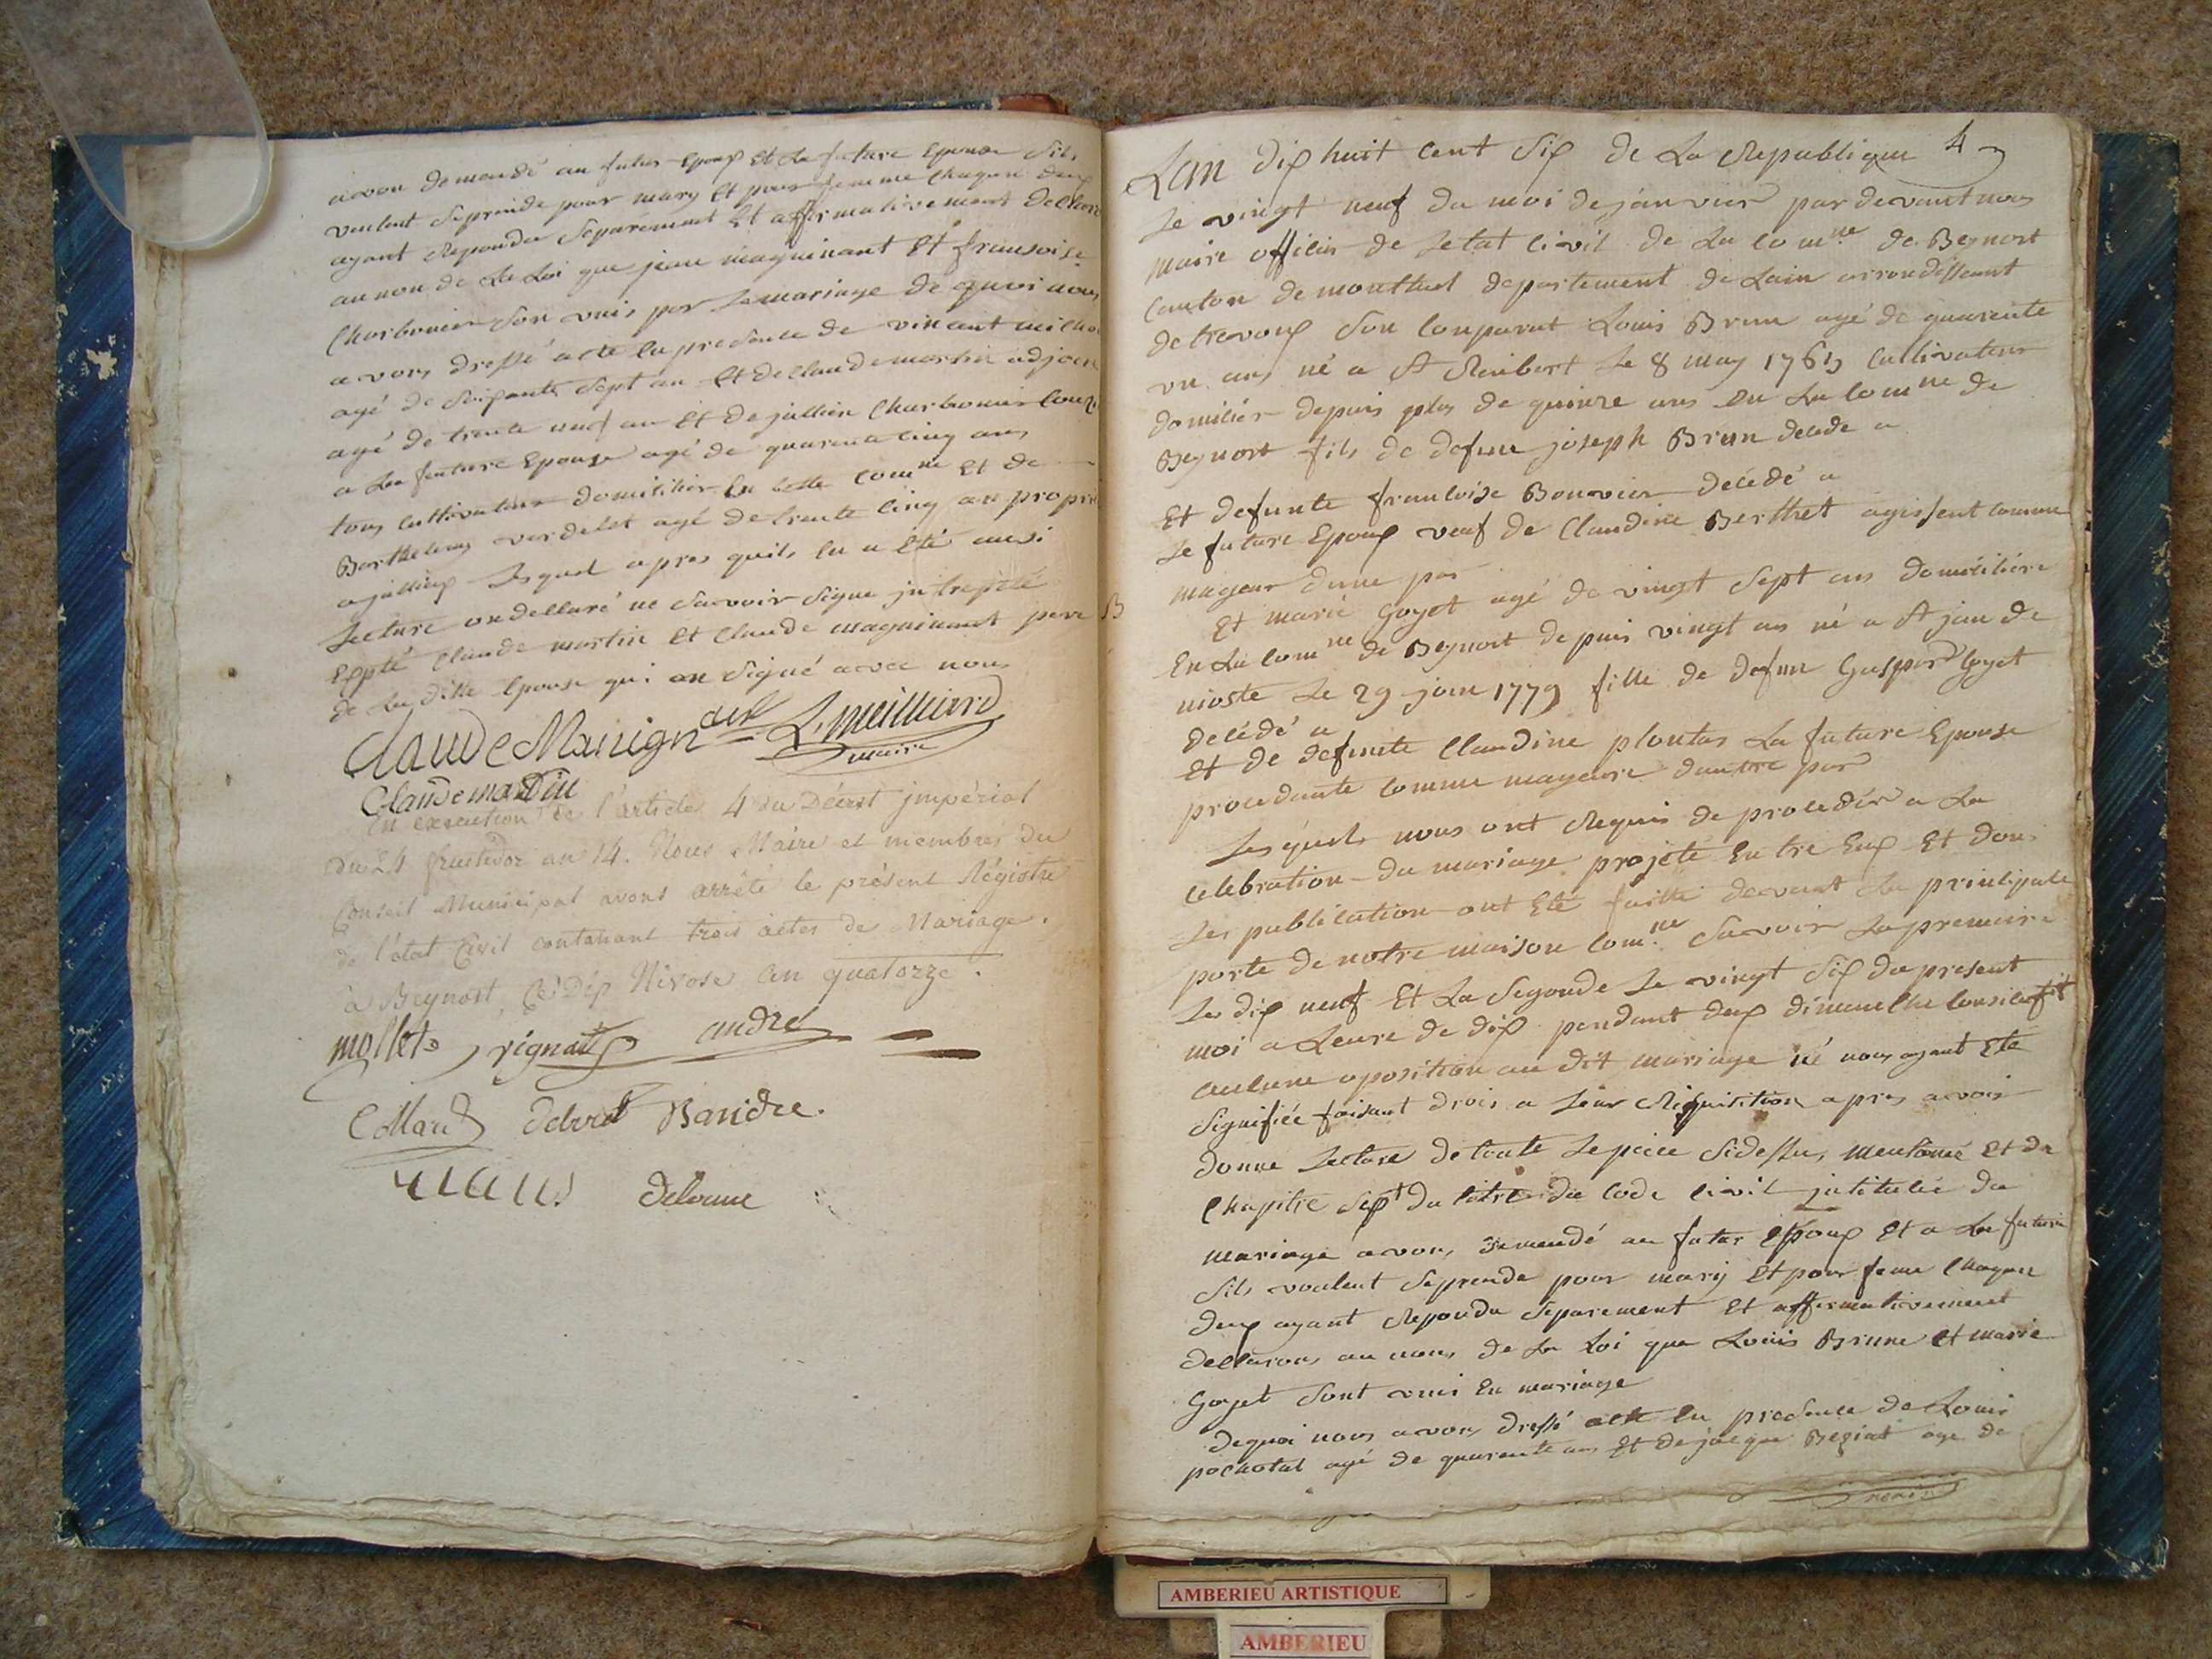 avon demandé au futur Epoux Et La future Epouse Sils
veulent Seprende pour mary Et pour femme Chaqun deux
ayant Repondu Séparément Et affirmativement declaron
au non de La Loi que jean maguinant Et fransoise
Charbonier Son unis par Le mariage de quoi nous
avons dressé acte En presence de vincent
agé de Soixante Sept an Et de Claude martin adjoin
agé de trente neuf an Et de jullien Charbonier
a La future Epouse agé de quarente cinq ans
tous cultivateur domicilier En cette Comne Et de
Barthelemy verdelet agé de trente cinq an
Lesquel apres quils En a Eté
Lecture on declaré ne Savoir Signe
Expté Claude martin Et Claude maguinant pere
de La ditte Epouse qui on Signé avec nous
Claude Manignand L. meilliard
maire
Claude martin
En execution de l'article 4 du Décret jmpérial
du 24 fructidor an 14. Nous Maire et membres du
Conseil Municipal avons arrêté le présent Régistre
de l'état Civil contenant trois actes de Mariage.
à Beynost, Ce Dix Nivose an quatorze.
mollet andré
Collard Baridre.
delorme
Lan dix huit cent Six de La Republique 4
Le vingt neuf du moi de janvier par devant nous
maire officier de Letat civil de La comne de Beynost
Canton de montluel departement de Lain arrondissemt
de trevoux Son Conparut Louis Brun agé de quarente
un ans né a St Rimbert Le 8 may 1765 Cultivateur
domicilier depuis plus de quinze ans En La Comne de
Beynost fils de defun joseph Brun decede a
Et defunte francoise Bouvier décédé a
Le future Epoux veuf de Claudine Berthet agissent comme
mageur dune par
Et marie goyet agé de vingt Sept ans domicilière
En La Comne de Beynost depuis vingt ans né a St jean de
nioste Le 29 join 1779 fille de defun Gaspard Goyet
décédé a
Et de defunte Claudine plontas La future Epouse
procedante Comme mageure dautre par
Lesquels nous ont Requis de proceder a La
Celebration du mariage projeté Entre Eux Et dons
Les publication ont Eté faitte devant La principale
porte de notre maison Comne Savoir La premiere
Le dix neuf Et La Segonde Le vingt Six du present
moi a Leure de dix pendant deux dimenche
aucune oposition au dit mariage né nous ayant Eté
Signifiée faisant drois a Leur Requisition apres avoir
donne Lecture de toute Le piece Sidessus mentioné Et du
Chapitre Sixt du titre du Code Civil jntitulée du
mariage avons demandé au futur Epoux Et a La future
Sils voulent Seprende pour mary Et pour feme Chaqun
deux ayant Repondu Séparément Et affirmativement
declarons au nons de La Loi que Louis Brune Et marie
Goyet Sont uni En mariage
de quoi nous avons dressé acte En presence de Louis
pochotat agé de quarente ans Et de jaeque Beziat age de
AMBERIEU ARTISTIQUE
AMBERIEU